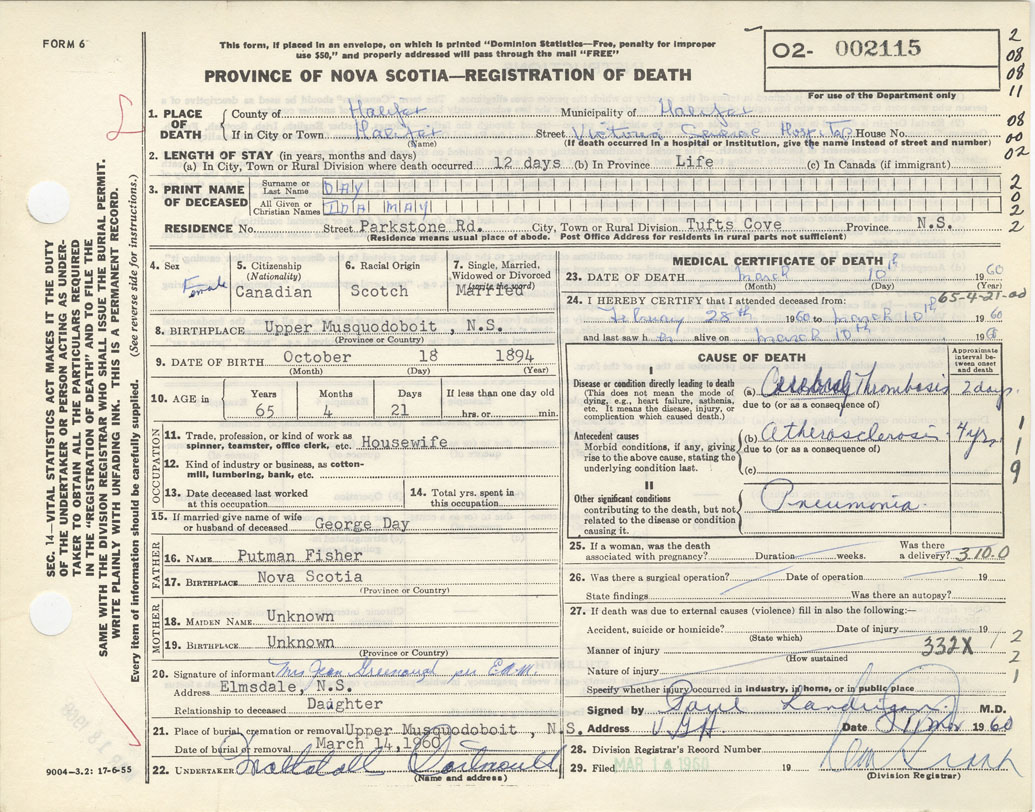 FORM 6
This form, if placed in an envelope, on which is printed "Dominion Statistics—Free, penalty for improper
use $50," and properly addressed will pass through the mail "FREE"
PROVINCE OF NOVA SCOTIA—REGISTRATION OF DEATH
O2- 002115
For use of the Department only
2
08
08
11
08
00
02
2
0
2
2
SEC. 14—VITAL STATISTICS ACT MAKES IT THE DUTY
OF THE UNDERTAKER OR PERSON ACTING AS UNDER-
TAKER TO OBTAIN ALL THE PARTICULARS REQUIRED
IN THE "REGISTRATION OF DEATH" AND TO FILE THE
SAME WITH THE DIVISION REGISTRAR WHO SHALL ISSUE THE BURIAL PERMIT.
WRITE PLAINLY WITH UNFADING INK. THIS IS A PERMANENT RECORD.
Every item of information should be carefully supplied. (See reverse side for instructions.)
1. PLACE OF DEATH
County of Halifax Municipality of Halifax
If in City or Town Halifax Street Victoria General Hospital House No.
(Name) (If death occurred in a hospital or institution, give the name instead of street and number)
2. LENGTH OF STAY (in years, months and days)
(a) In City, Town or Rural Division where death occurred 12 days (b) In Province Life (c) In Canada (if immigrant)
3. PRINT NAME OF DECEASED
Surname or Last Name DAY
All Given or Christian Names IDA MAY
RESIDENCE No. Street Parkstone Rd. City, Town or Rural Division Tufts Cove Province N.S.
(Residence means usual place of abode. Post Office Address for residents in rural parts not sufficient)
4. Sex Female
5. Citizenship (Nationality) Canadian
6. Racial Origin Scotch
7. Single, Married, Widowed or Divorced (write the word) Married
8. BIRTHPLACE Upper Musquodoboit , N.S.
(Province or Country)
9. DATE OF BIRTH October 18 1894
(Month) (Day) (Year)
10. AGE in Years 65 Months 4 Days 21 If less than one day old hrs. or min.
OCCUPATION
11. Trade, profession, or kind of work as
spinner, teamster, office clerk, etc. Housewife
12. Kind of industry or business, as cotton-
mill, lumbering, bank, etc.
13. Date deceased last worked
at this occupation
14. Total yrs. spent in
this occupation
15. If married give name of wife
or husband of deceased George Day
FATHER
16. NAME Putman Fisher
17. BIRTHPLACE Nova Scotia
(Province or Country)
MOTHER
18. MAIDEN NAME Unknown
19. BIRTHPLACE Unknown
(Province or Country)
20. Signature of informant Mrs Jean Greenough per
Address Elmsdale, N.S.
Relationship to deceased Daughter
21. Place of burial, cremation or removal Upper Musquodoboit , N.S.
Date of burial or removal March 14,1960
22. UNDERTAKER Dartmouth
(Name and address)
9004—3.2: 17-6-55
MEDICAL CERTIFICATE OF DEATH
23. DATE OF DEATH March 10th 1960
(Month) (Day) (Year)
65-4-21-
24. I HEREBY CERTIFY that I attended deceased from:
February 28th 1960 to March 10th 1960
and last saw h er alive on March 10th 196
CAUSE OF DEATH
Approximate interval between onset and death
I
Disease or condition directly leading to death
(This does not mean the mode of
dying, e.g., heart failure, asthenia,
etc. It means the disease, injury, or
complication which caused death.)
(a) Cerebral Thrombosis 2 days
due to (or as a consequence of)
Antecedent causes
Morbid conditions, if any, giving
rise to the above cause, stating the
underlying condition last.
(b) Atherosclerosis 4 yrs
due to (or as a consequence of)
(c)
II
Other significant conditions
contributing to the death, but not
related to the disease or condition
causing it.
Pneumonia.
1
1
9
25. If a woman, was the death
associated with pregnancy? Duration weeks. Was there a delivery? 3.10.0
26. Was there a surgical operation? Date of operation 19
State findings Was there an autopsy?
27. If death was due to external causes (violence) fill in also the following:—
Accident, suicide or homicide? Date of injury 19
(State which)
Manner of injury 332X
(How sustained)
Nature of injury
1
2
2
1
Specify whether injury occurred in industry, in home, or in public place
Signed by Paul Landrigan M.D.
Address V.G.H. Date 11 Mar 1960
28. Division Registrar's Record Number
29. Filed MAR 14 1960 19
(Division Registrar)